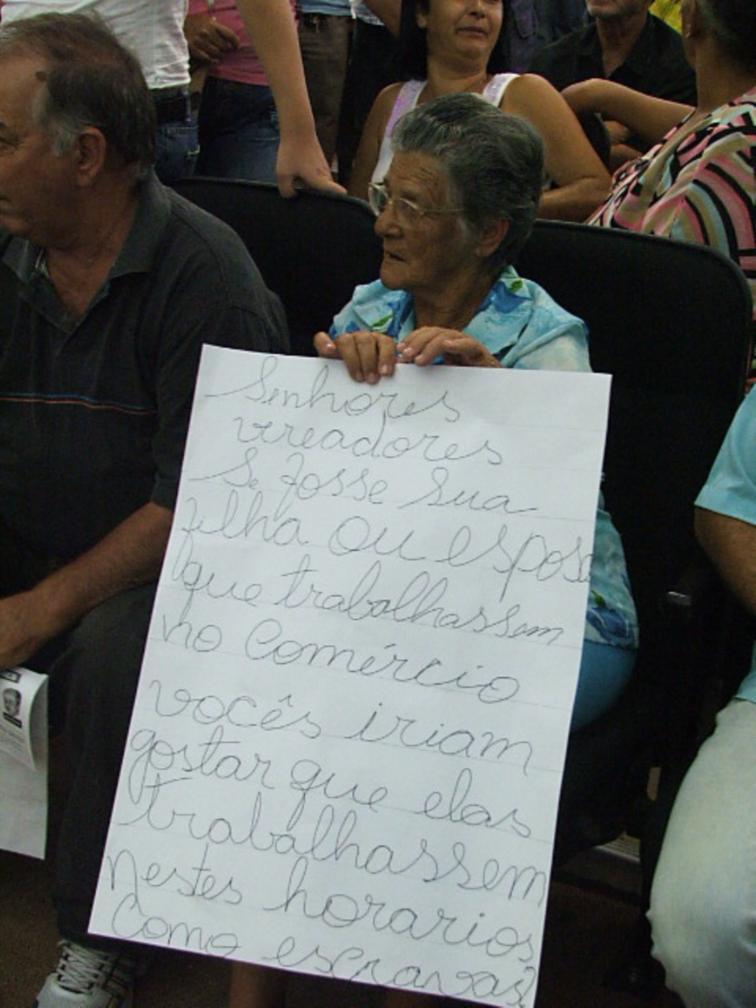 Senhores
vereadores
Se fosse sua
filha ou esposa
que trabalhassem
no comércio
vocês iriam
gostar que elas
trabalhassem
nestes horarios
como escravas?